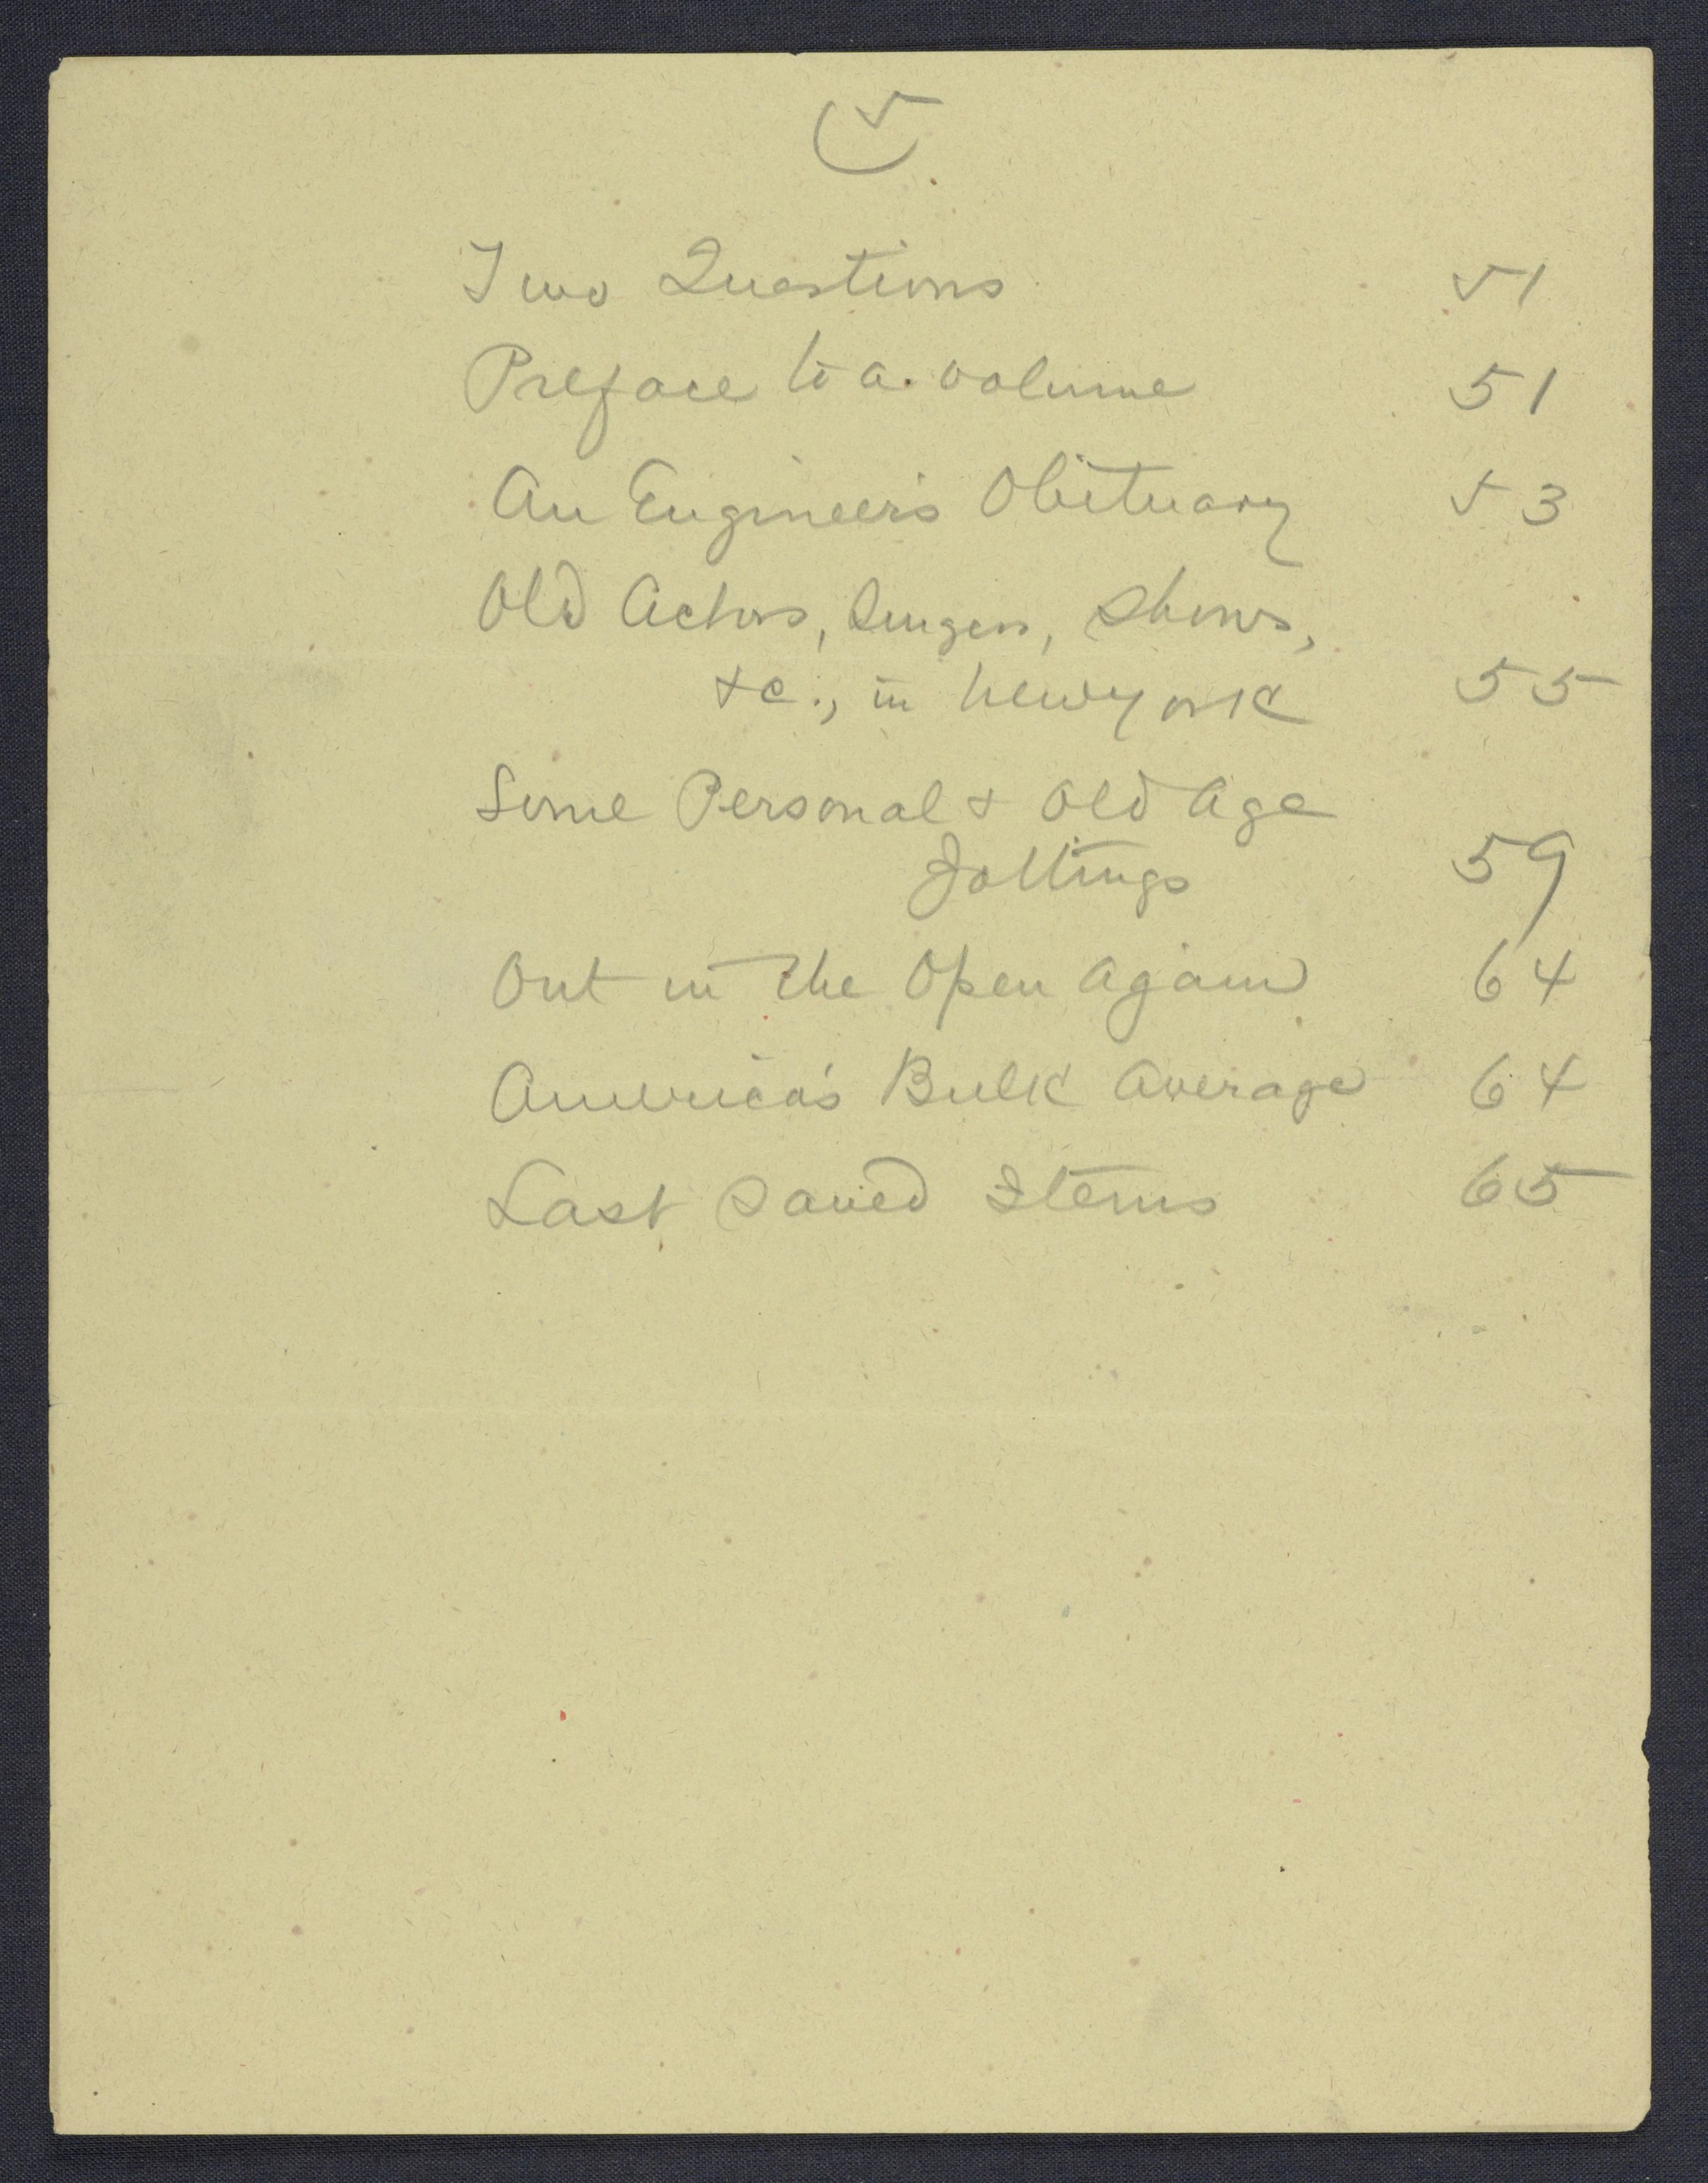 5
Two Questions 51
Preface to a volume 51
An Engineer's Obituary 53
Old Actors, Singers, Shows,
&c., in New York 55
Some Personal & Old Age
Jottings 59
Out in the Open Again 64
America's Bulk Average 64
Last Saved Items 65